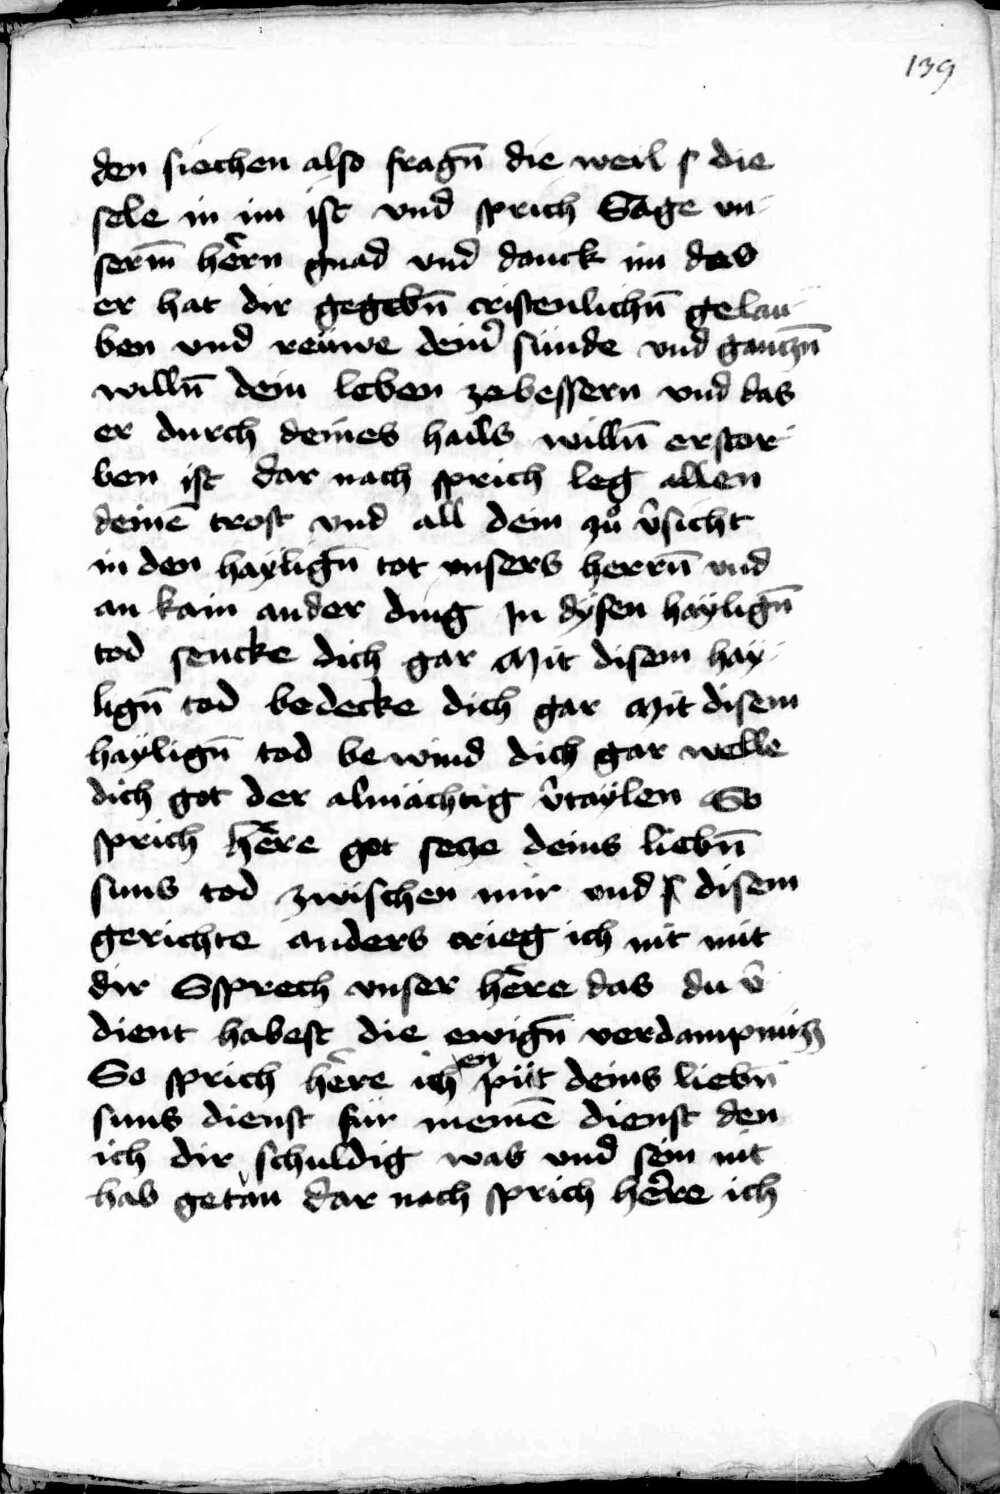 139
den siechen also fragn̄ die weil s die
sele in im ist vnd sprich Sage vn
serm̄ hêrn gnad vnd danck im das
er hat dir gegebn̄ cristenlichn̄ gelau
ben vnd reüwe deinˀ sünde vnd gantzn̄
willn̄ dein leben ze bessern vnd das
er durch deines hails willn̄ erstor
ben ist dar nach sprich leg allen
deinē trost vnd all dein zů v̂sicht
in den haylign̄ tot vnsers herrn̄ vnd
an kain ander ding In dysen haylign̄
tod sencke dich gar Mit disem hay
lign̄ tod bedecke dich gar Mit disem
haylign̄ tod be wind dich gar welle
dich got der almächtig v̂taylen So
sprich hêre got setze deins liebn̄
suns tod zwischen mir vnd s disem
gerichte anders crieg ich nit mit
dir Ssprech vnser hêre das du v̂
dient habest die ewign̄ verdampnüß
So sprich hêre ich en püt deins liebn̄
suns dienst für meinē dienst den
ich dir schuldig was vnd sein nit
hab getan dar nach sprich hêre ich